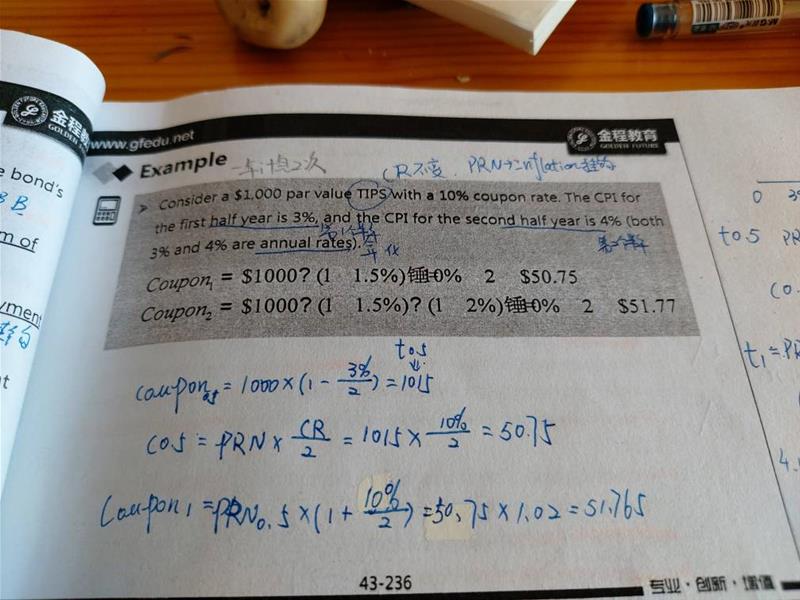 金程教育
GOLDEN FUTURE
www.gfedu.net
e bond's
B
m of
yment
t
Example 一年计息2次 CR不变. PRN→inflation挂钩
Consider a $1,000 par value TIPS with a 10% coupon rate. The CPI for
the first half year is 3%, and the CPI for the second half year is 4% (both
3% and 4% are annual rates).
年化
Coupon₁ = $1000? (1 1.5%)锤=0% 2 $50.75
Coupon₂ = $1000? (1 1.5%)? (1 2%)锤=0% 2 $51.77
t0.5
coupon₀.₅ = 1000 × (1 - 3%/2) = 1015
C0.5 = PRN × CR/2 = 1015 × 10%/2 = 50.75
Coupon₁ = PRN₀.5 × (1 + 10%/2) = 50.75 × 1.02 = 51.765
43-236
专业·创新·增值
0
t0.5 PR
C0.
t₁ = PR
4.